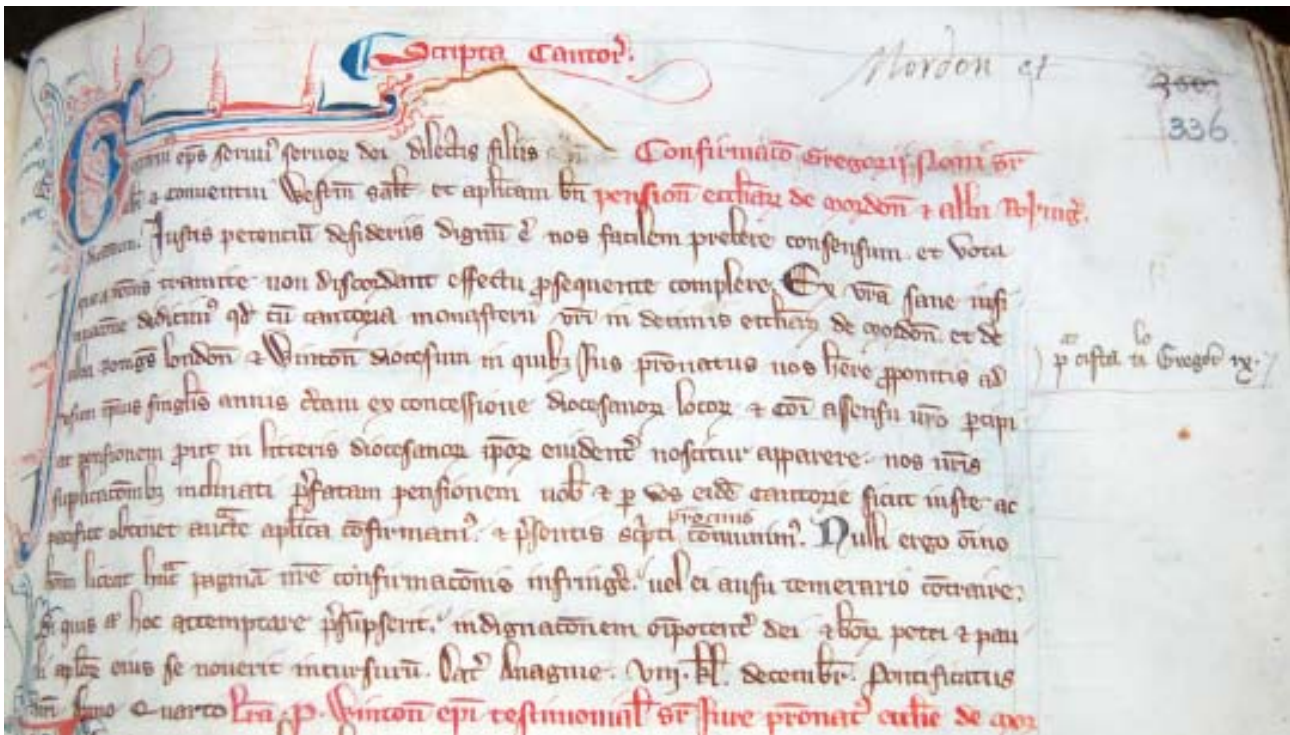 Scripta Cantor'.
Mordon et
300
336.
Gregorius ep̄s seruu' seruoꝝ dei dilectis filiis
Confirmatō Gregorij noni sr̄
⁊ conuentui Westm̄ salt̄ et aplicam bn̄
pension̄ eccl̄iaꝝ de mordon̄ ⁊ alba Roþing'.
Iustis petenciū desideriis dignū ē nos facilem prebere consensum. et vota
que a rōnis tramite non discordant effectu ꝓsequente complere. Ex vr̄a sane insi
nuacōne didicim' qd̄ cū cantoria monasterii vr̄i in decimis eccl̄iaꝝ de mordon̄. et de
alba Roings london̄ ⁊ Winton̄ diocesium in quibꝫ Ius pr̄onatus uos h̄ere ꝓponitis ad
singl̄is annis c̄tam ex concessione diocesanoꝝ locoꝝ ⁊ cōi assensu ur̄o ꝑcipi
at pensionem put in litteris diocesanoꝝ ip̄oꝝ euident' noscitur apparere. nos ur̄is
suplicatōnibꝫ inclinati p̄fatam pensionem uob̄ ⁊ ꝑ vos eidē cantorie sicut iuste ac
pacifice obtinet auct̄e aplica cōfirmam'. ⁊ p̄sentis sc̄pti cōmunim'.
procinio
Nulli ergo ōino
hōim liceat hāc paginā nr̄e confirmacōnis infring'e. uel ei ausu temerario cōtraire.
Si quis at̄ hoc attemptare p̄supserit. indignacōnem oīpotent' dei ⁊ bōꝝ petri ⁊ pau
li aplōꝝ eius se nouerit incursurū. Dat' Anagnie. viij. kl̄. decembr̄. Pontificatus
nr̄i Anno Quarto
lr̄a P. Winton̄ epī testimonial' sr̄ Iure pr̄onat' eccl̄ie de mor
Gregor' ix.